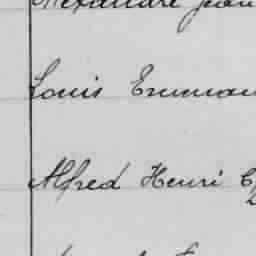 Alexandre Jean
Louis Emman
Alfred Henri